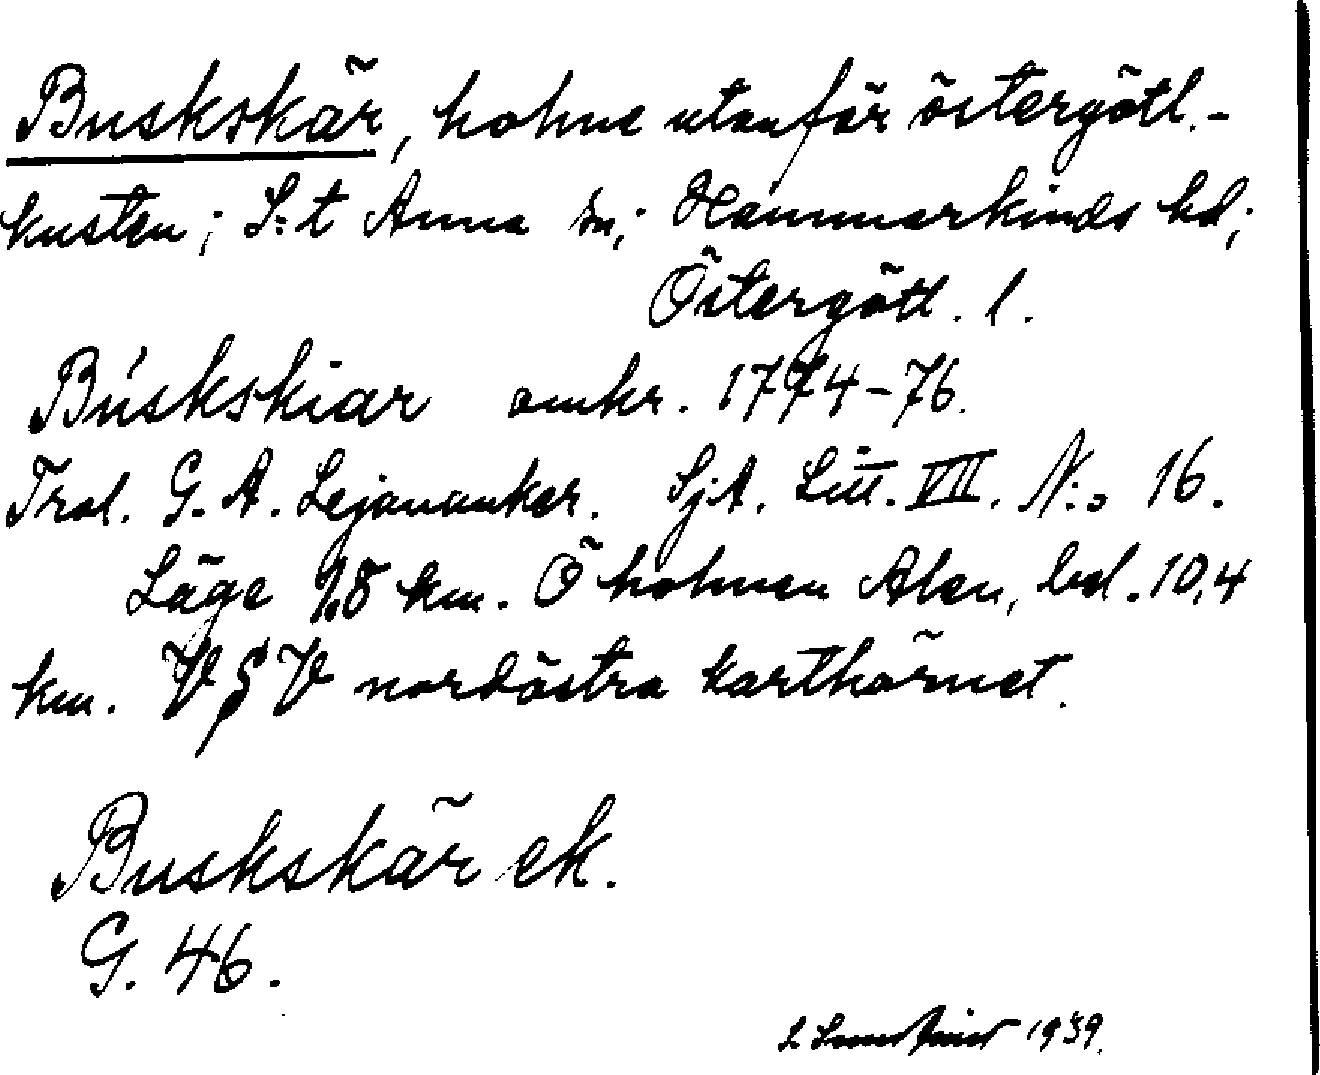 Buskskär, holme utanför östergötl.-
kusten; S:t Anna sn; Hammarkinds hd;
Östergötl. l.
Buskskiar omkr. 1774-76.
Trol. G. A. Lejonanker. SjA. Litt. VII. N:o 16.
Läge 1,8 km. Ö holmen Alen, bel. 10,4
km. VSV nordöstra karthörnet.
Buskskär ek.
G. 46.
1939.